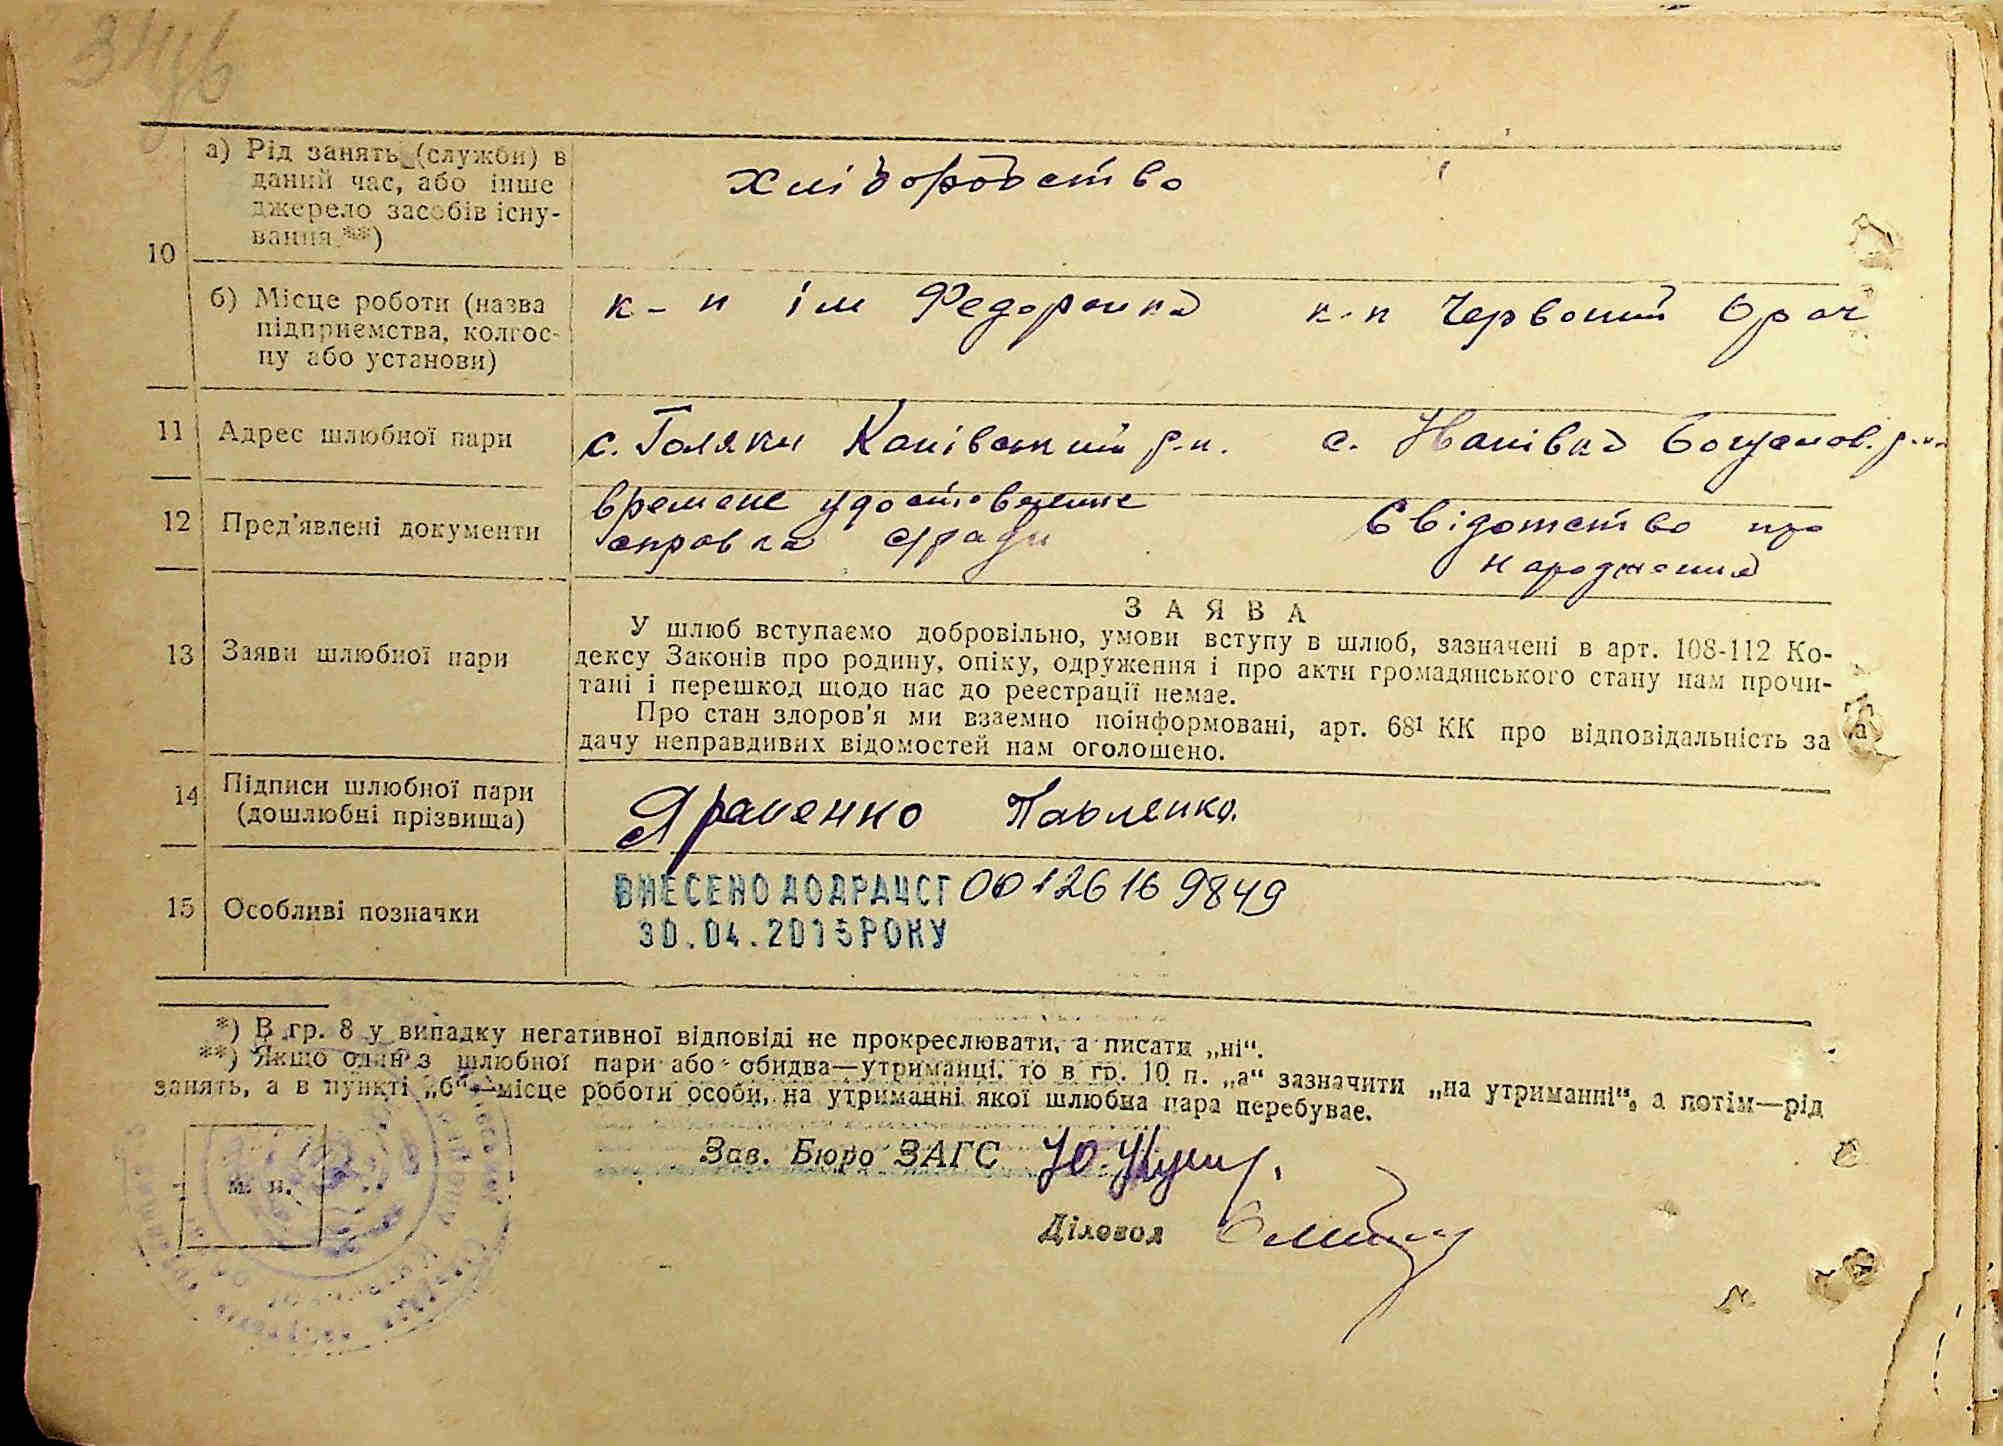 а) Рід занять (служби) в
даний час, або інше
джерело засобів існу-
вання **)
хліборобство
10
б) Місце роботи (назва
підприємства, колгос-
пу або установи)
к-п ім Федоренка к-п Червоний Орач
11 Адрес шлюбної пари
с. Голяки Канівський р-н. с.
12 Пред'явлені документи
времене удостоверение
справка с/ради
Свідотство про
народження
13 Заяви шлюбної пари
ЗАЯВА
У шлюб вступаємо добровільно, умови вступу в шлюб, зазначені в арт. 108-112 Ко-
дексу Законів про родину, опіку, одруження і про акти громадянського стану нам прочи-
тані і перешкод щодо нас до реєстрації немає.
Про стан здоров'я ми взаємно поінформовані, арт. 68¹ КК про відповідальність за
дачу неправдивих відомостей нам оголошено.
14 Підписи шлюбної пари
(дошлюбні прізвища)
Павленко.
15 Особливі позначки
ВНЕСЕНО ДО ДРАЦСГ 00126169849
30.04.2015 РОКУ
*) В гр. 8 у випадку негативної відповіді не прокреслювати, а писати „ні“.
**) Якщо один з шлюбної пари або обидва—утриманці, то в гр. 10 п. „а“ зазначити „на утриманні“, а потім—рід
занять, а в пункті „б“—місце роботи особи, на утриманні якої шлюбна пара перебуває.
Зав. Бюро ЗАГС
м. п.
Діловод